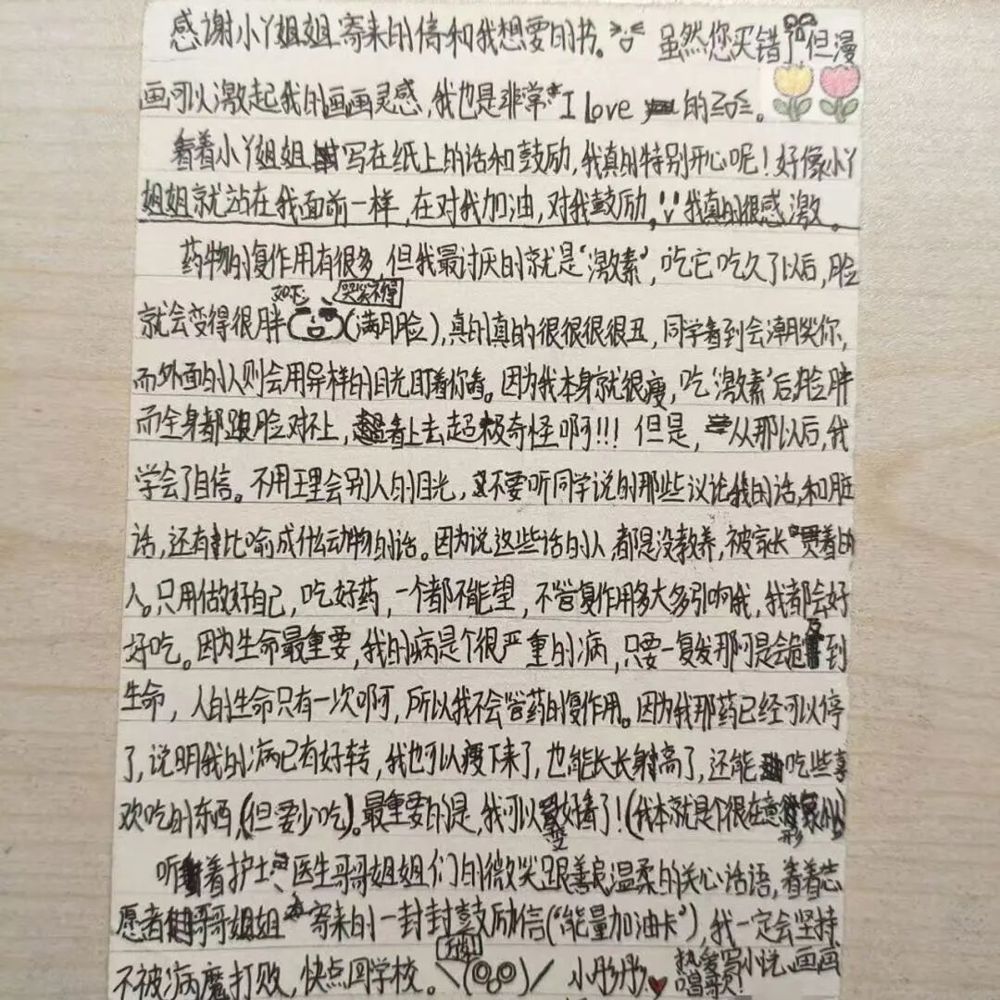 感谢小丫姐姐寄来的信和我想要的书。虽然您买错了,但漫
画可以激起我的画画灵感,我也是非常I love 的。
看着小丫姐姐写在纸上的话和鼓励,我真的特别开心呢!好像小丫
姐姐就站在我面前一样,在对我加油,对我鼓励,我真的很感激。
药物的复作用有很多,但我最讨厌的就是“激素”,吃它吃久了以后,脸
如下: 哭笑不得
就会变得很胖(满月脸),真的真的很很很很丑,同学看到会嘲笑你,
而外面的人则会用异样的目光盯着你看。因为我本身就很瘦,吃“激素”后脸胖
而全身都跟脸对不上,看上去超极奇怪啊!!!但是,从那以后,我
学会了自信。不用理会别人的目光,不要听同学说的那些议论我的话,和脏
话,还有比喻成什么动物的话。因为说这些话的人都是没教养,被家长“惯着”的
人。只用做好自己,吃好药,一个都不能望,不管复作用多大多影响我,我都会好
好吃。因为生命最重要,我的病是个很严重的病,只要一复发那可是会危及到
生命,人的生命只有一次啊,所以我不会管药的复作用。因为我那药已经可以停
了,说明我的病已有好转,我也可以瘦下来了,也能长长身高了,还能吃些喜
欢吃的东西,(但要少吃)。最重要的是,我可以变好看了!(我本就是个很在意形象的)
听着护士、医生哥哥姐姐们的微笑跟善良温柔的关心话语,看着志
愿者哥哥姐姐寄来的一封封鼓励信(“能量加油卡”),我一定会坚持
不被病魔打败,快点回学校。 加油 小彤彤 热爱写小说、画画
唱歌!